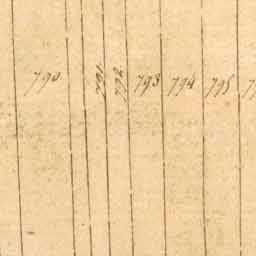 790 791 792 793 794 795